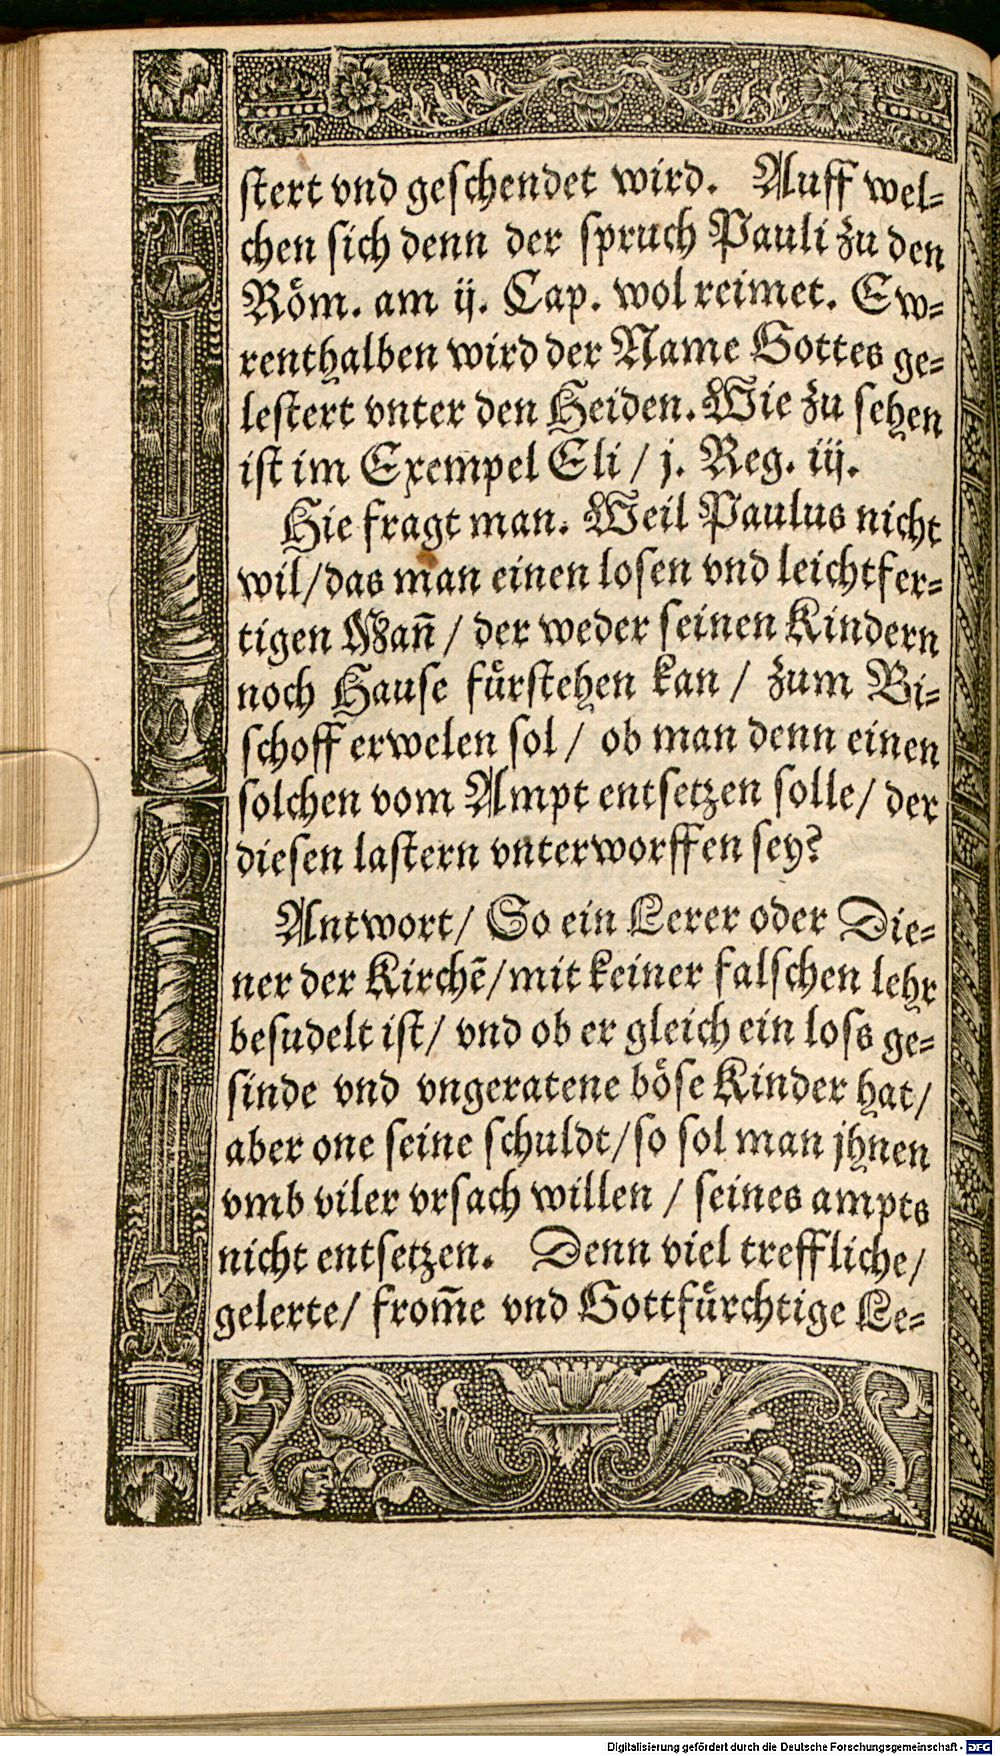 stert vnd geschendet wird. Auff wel-
chen sich denn der spruch Pauli zu den
Röm. am ij. Cap. wol reimet. Ew-
renthalben wird der Name Gottes ge-
lestert vnter den Heiden. Wie zu sehen
ist im Exempel Eli / j. Reg. iij.
Hie fragt man. Weil Paulus nicht
wil/das man einen losen vnd leichtfer-
tigen Mañ / der weder seinen Kindern
noch Hause fürstehen kan / zum Bi-
schoff erwelen sol / ob man denn einen
solchen vom Ampt entsetzen solle/ der
diesen lastern vnterworffen sey?
Antwort/ So ein Lerer oder Die-
ner der Kirchē/mit keiner falschen lehr
besudelt ist/ vnd ob er gleich ein loss ge-
sinde vnd vngeratene böse Kinder hat/
aber one seine schuldt/so sol man jhnen
vmb viler vrsach willen / seines ampts
nicht entsetzen. Denn viel treffliche/
gelerte/ from̄e vnd Gottfürchtige Le-
Digitalisierung gefördert durch die Deutsche Forschungsgemeinschaft - DFG